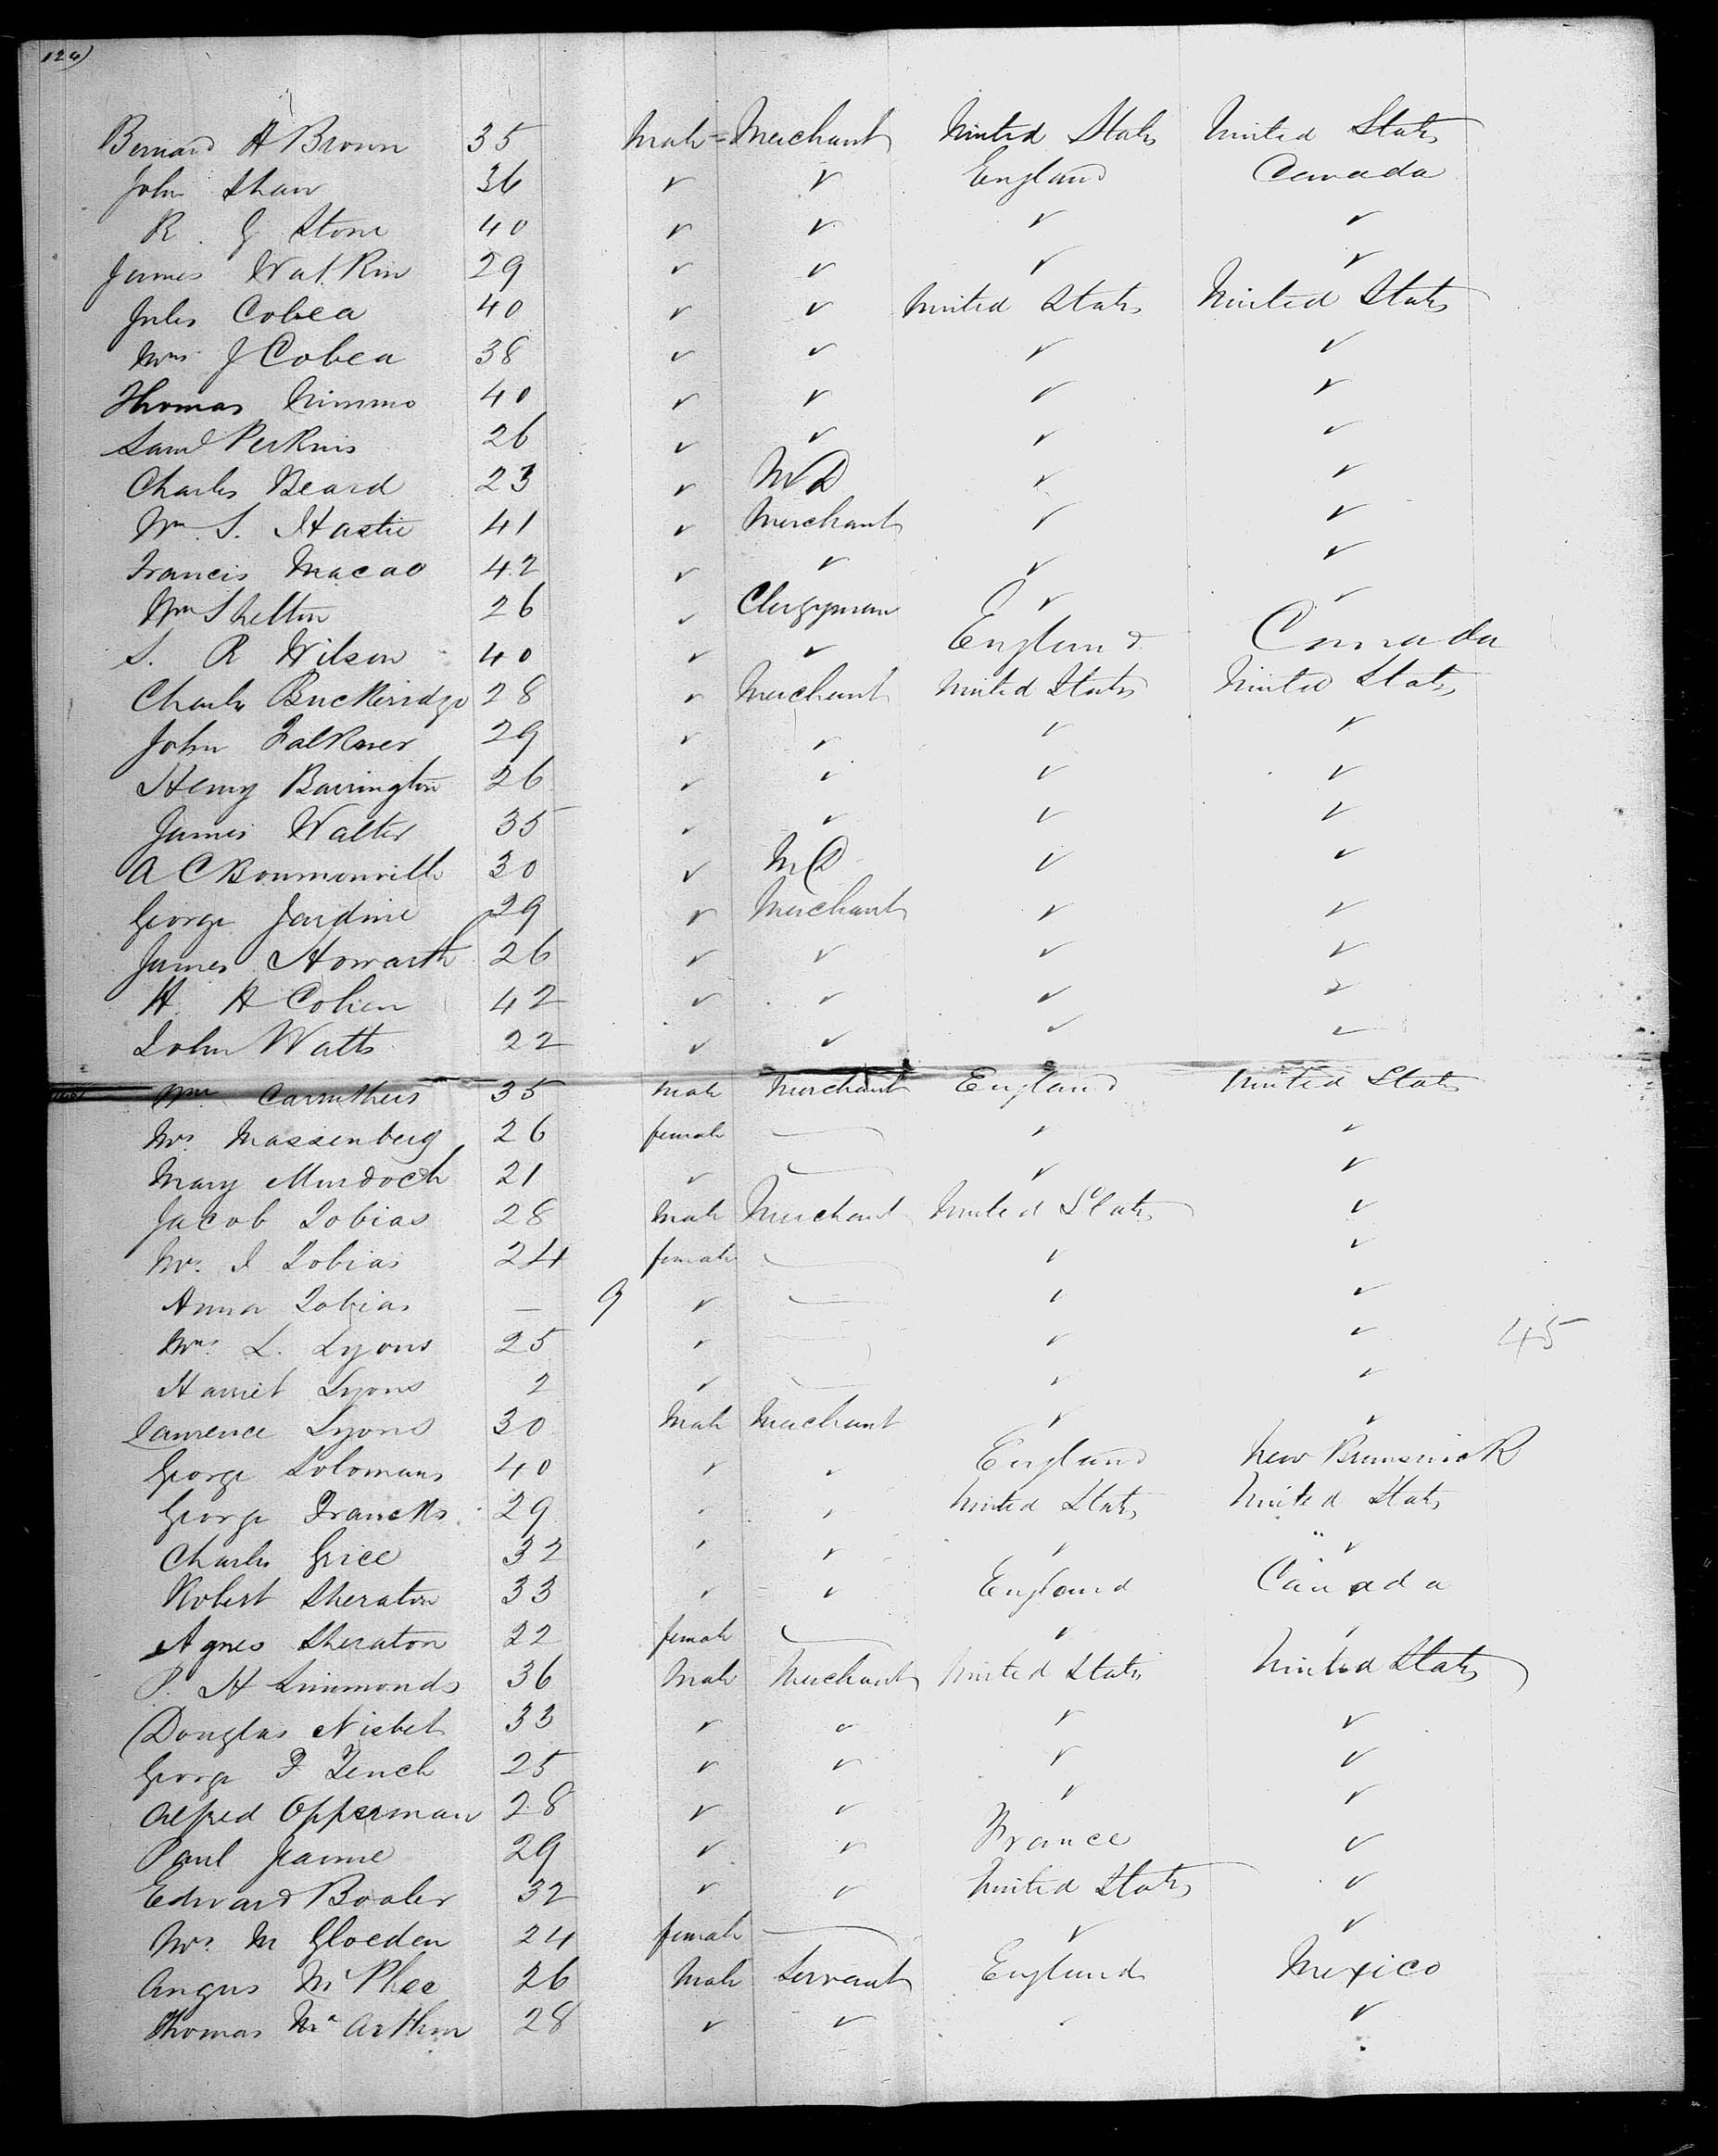 126)
Bernard H Brown 35 Male = Merchant United States United States
John Shaw 36 ✓ ✓ England Canada
R. G Stone 40 ✓ ✓ ✓ ✓
James Watkin 29 ✓ ✓ ✓ ✓
Jules Cobea 40 ✓ ✓ United States United States
Mrs J Cobea 38 ✓ ✓ ✓ ✓
Thomas Nimmo 40 ✓ ✓ ✓ ✓
Saml Perkins 26 ✓ ✓ ✓ ✓
Charles Beard 23 ✓ MD ✓ ✓
Wm. S. Hastie 41 ✓ Merchant ✓ ✓
Francis Macao 42 ✓ ✓ ✓ ✓
Wm Shelton 26 ✓ Clergyman ✓ ✓
S. R Wilson 40 ✓ ✓ England Cannada
Charles Buckeridge 28 ✓ Merchant United States United States
John Falkner 29 ✓ ✓ ✓ ✓
Henry Barrington 26 ✓ ✓ ✓ ✓
James Walter 35 ✓ ✓ ✓ ✓
A C Bournonville 30 ✓ MD ✓ ✓
George Jardine 29 ✓ Merchant ✓ ✓
James Howarth 26 ✓ ✓ ✓ ✓
H. H Cohen 42 ✓ ✓ ✓ ✓
John Watts 22 ✓ ✓ ✓ ✓
Wm Carruthers 35 Male Merchant England United States
Mrs. Massenberg 26 female — ✓ ✓
Mary Murdoch 21 ✓ — ✓ ✓
Jacob Tobias 28 Male Merchant United States ✓
Mrs. J Tobias 24 female — ✓ ✓
Anna Tobias — 9 ✓ — ✓ ✓
Mrs. L. Lyons 25 ✓ — ✓ ✓ 45
Harriet Lyons 2 ✓ — ✓ ✓
Laurence Lyons 30 Male Merchant ✓ ✓
George Solomans 40 ✓ ✓ England New Brunswick
George Francks 29 ✓ ✓ United States United States
Charles Grice 32 ✓ ✓ ✓ ✓
Robert Sheraton 33 ✓ ✓ England Canada
Agnes Sheraton 22 female — ✓ ✓
P. H Simmonds 36 Male Merchant United States United States
Douglas Nisbet 33 ✓ ✓ ✓ ✓
George F Tench 25 ✓ ✓ ✓ ✓
Alfred Opperman 28 ✓ ✓ ✓ ✓
Paul Jeanne 29 ✓ ✓ France ✓
Edward Booler 32 ✓ ✓ United States ✓
Mrs. M Gloeden 24 female — ✓ ✓
Angus McPhee 26 Male Servant England Mexico
Thomas McArthur 28 ✓ ✓ ✓ ✓